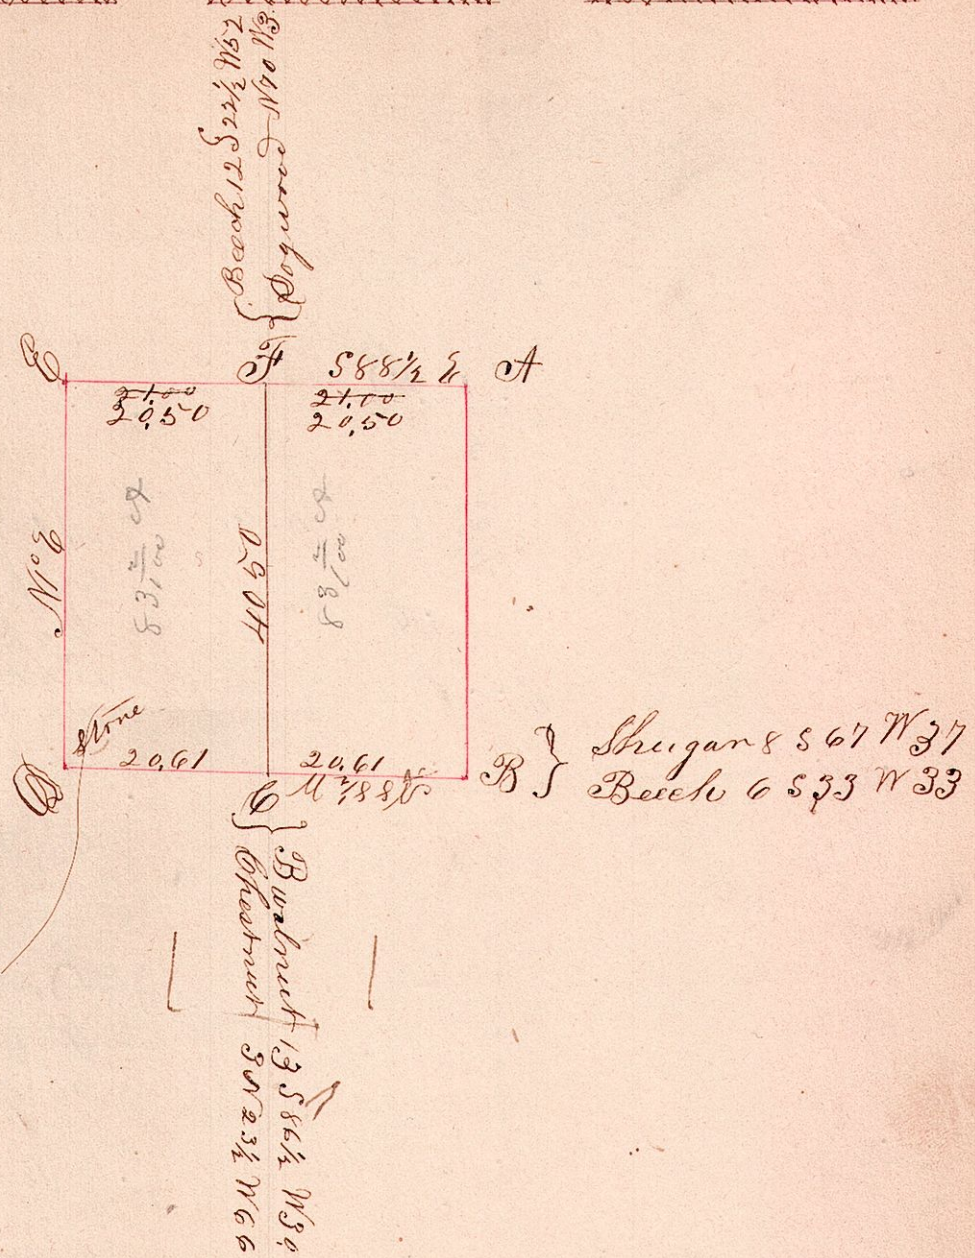 Beech 12 S 22½ W 52
Dogwood N 70 W 3
E
F
S 88½ E
A
21.00
21.00
20,50
20,50
N ° E
83 2/100 A
40 50
83 2/100 A
Stone
20,61
20,61
N 88½ W
D
C
B
Shugar 8 S 67 W 37
Beech 6 S 33 W 33
B walnut 13 S 86½ W 30
Chestnut 3 N 23½ W 66